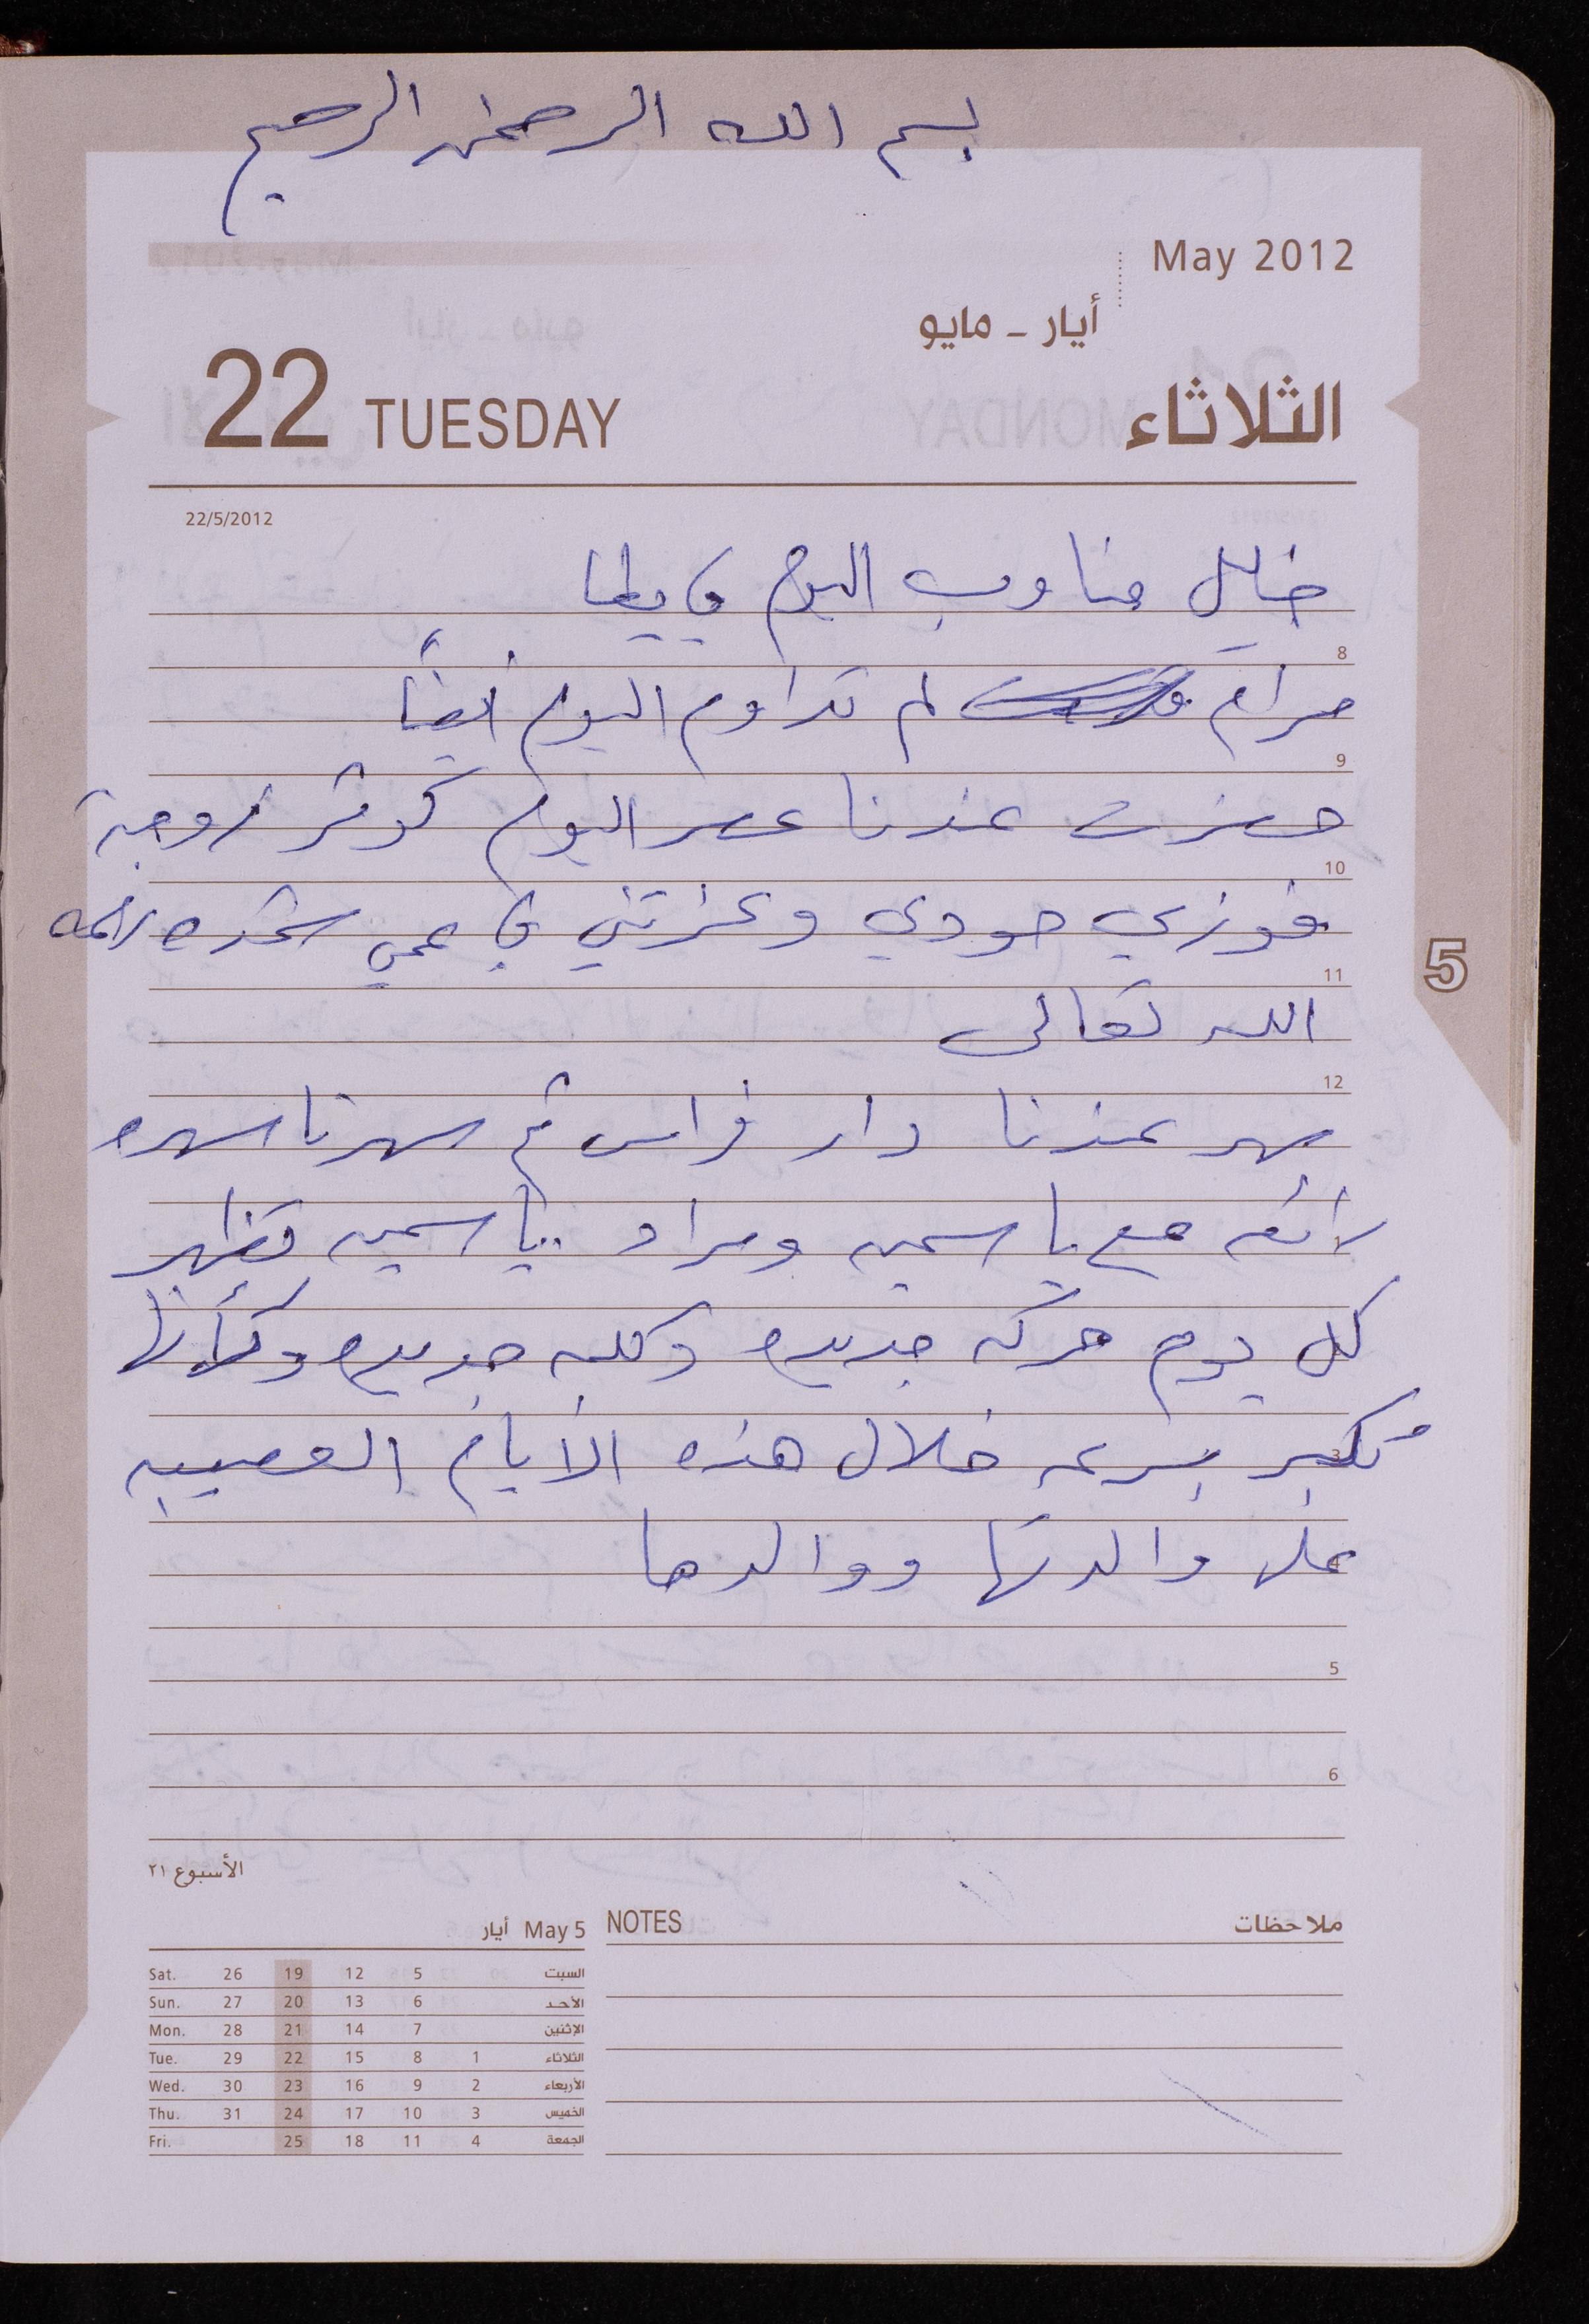 بسم الله الرحمن الرحيم
May 2012
أيار - مايو
22 TUESDAY الثلاثاء
22/5/2012
خليل مناوب اليوم في يطا
8
مرام لم تداوم اليوم أيضاً
9
حضرت عندنا عصر اليوم كوثر زوجة
10
فوزي حودي وعزتني في عمي شحده رحمه
11
5
الله تعالى
12
سهر عندنا دار فراس ثم سهرنا سهره
رائعه مع ياسمين ومراد .. ياسمين تظهر
كل يوم حركه جديده وكلمه جديده وكأنها
تكبر بسرعه خلال هذه الأيام العصيبه
3
على والدتها ووالدها
4
5
6
الأسبوع ٢١
أيار May 5
NOTES ملاحظات
Sat. 26 19 12 5 السبت
Sun. 27 20 13 6 الأحد
Mon. 28 21 14 7 الإثنين
Tue. 29 22 15 8 1 الثلاثاء
Wed. 30 23 16 9 2 الأربعاء
Thu. 31 24 17 10 3 الخميس
Fri. 25 18 11 4 الجمعة